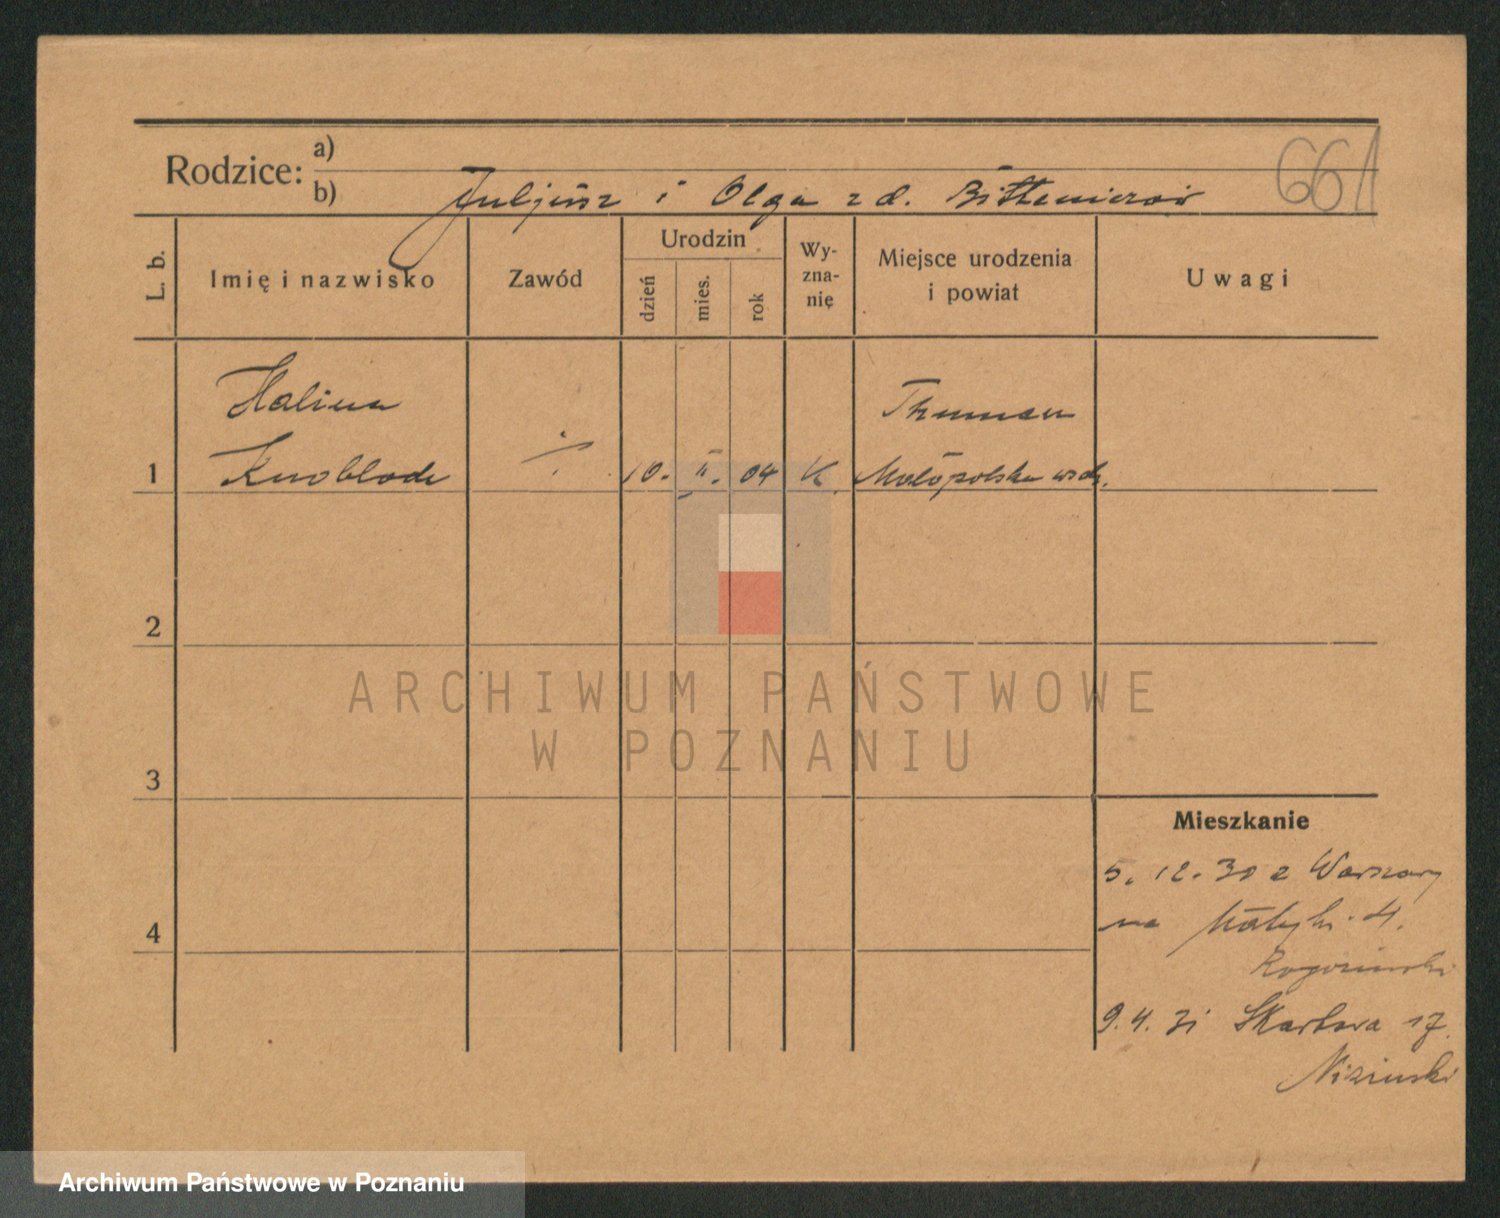 661
Rodzice: a)
b) Juljusz i Olga z d.
L. b. Imię i nazwisko Zawód Urodzin dzień mies. rok Wy-zna-nię Miejsce urodzenia i powiat Uwagi
Halina
1 Knobloch ·/· 10. II. 04 K. Małopolska wsch.
2
3
4
Mieszkanie
5. 12. 30 z Warszawy
na Matejki 4.
Rogoziński
9. 4. 31 Skarbowa 17.
Niziński
ARCHIWUM PAŃSTWOWE
W POZNANIU
Archiwum Państwowe w Poznaniu